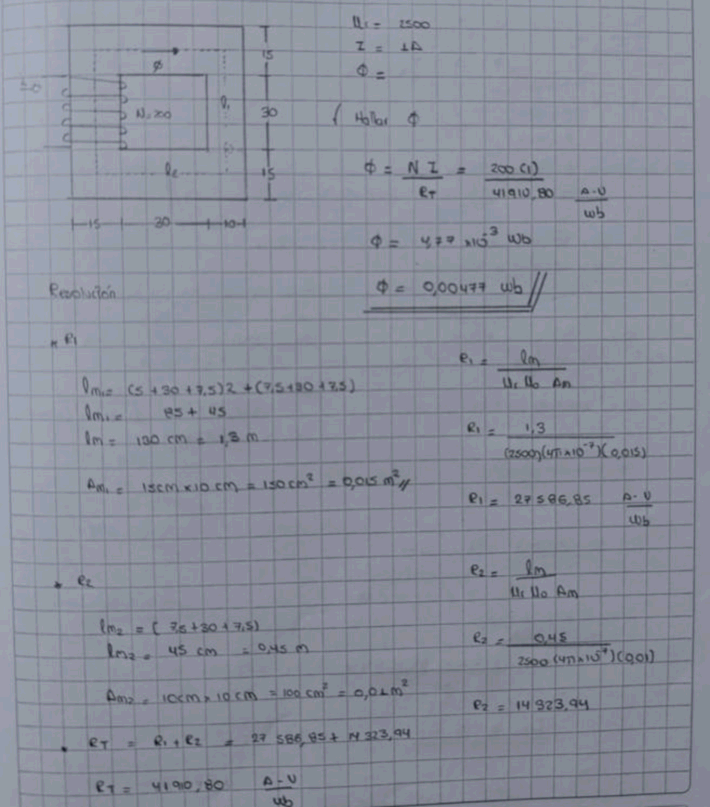 μr = 2500
I = 1A
Φ =
Φ
15
N=200
30
15
15 30 10
( Hallar Φ
Φ = N I / RT = 200 (1) / 41910,80 A-V / Wb
Φ = 4,77 x10^-3 Wb
Φ = 0,00477 Wb
Resolución
R1
lm1 = (5 + 30 + 7,5) 2 + (7,5+30+7,5)
lm1 = 85 + 45
lm = 130 cm = 1,3 m
Am1 = 15cm x 10 cm = 150 cm² = 0,015 m²
R1 = lm / μr μo Am
R1 = 1,3 / (2500)(4π x10^-7)(0,015)
R1 = 27586,85 A-V / Wb
* R2
lm2 = ( 7,5+30+7,5)
lm2 = 45 cm = 0,45 m
Am2 = 10cm x 10 cm = 100 cm² = 0,01 m²
R2 = lm / μr μo Am
R2 = 0,45 / 2500 (4π x10^-7)(0,01)
R2 = 14 323,94
. RT = R1 + R2 = 27 586,85 + 14 323,94
RT = 41910,80 A-V / Wb